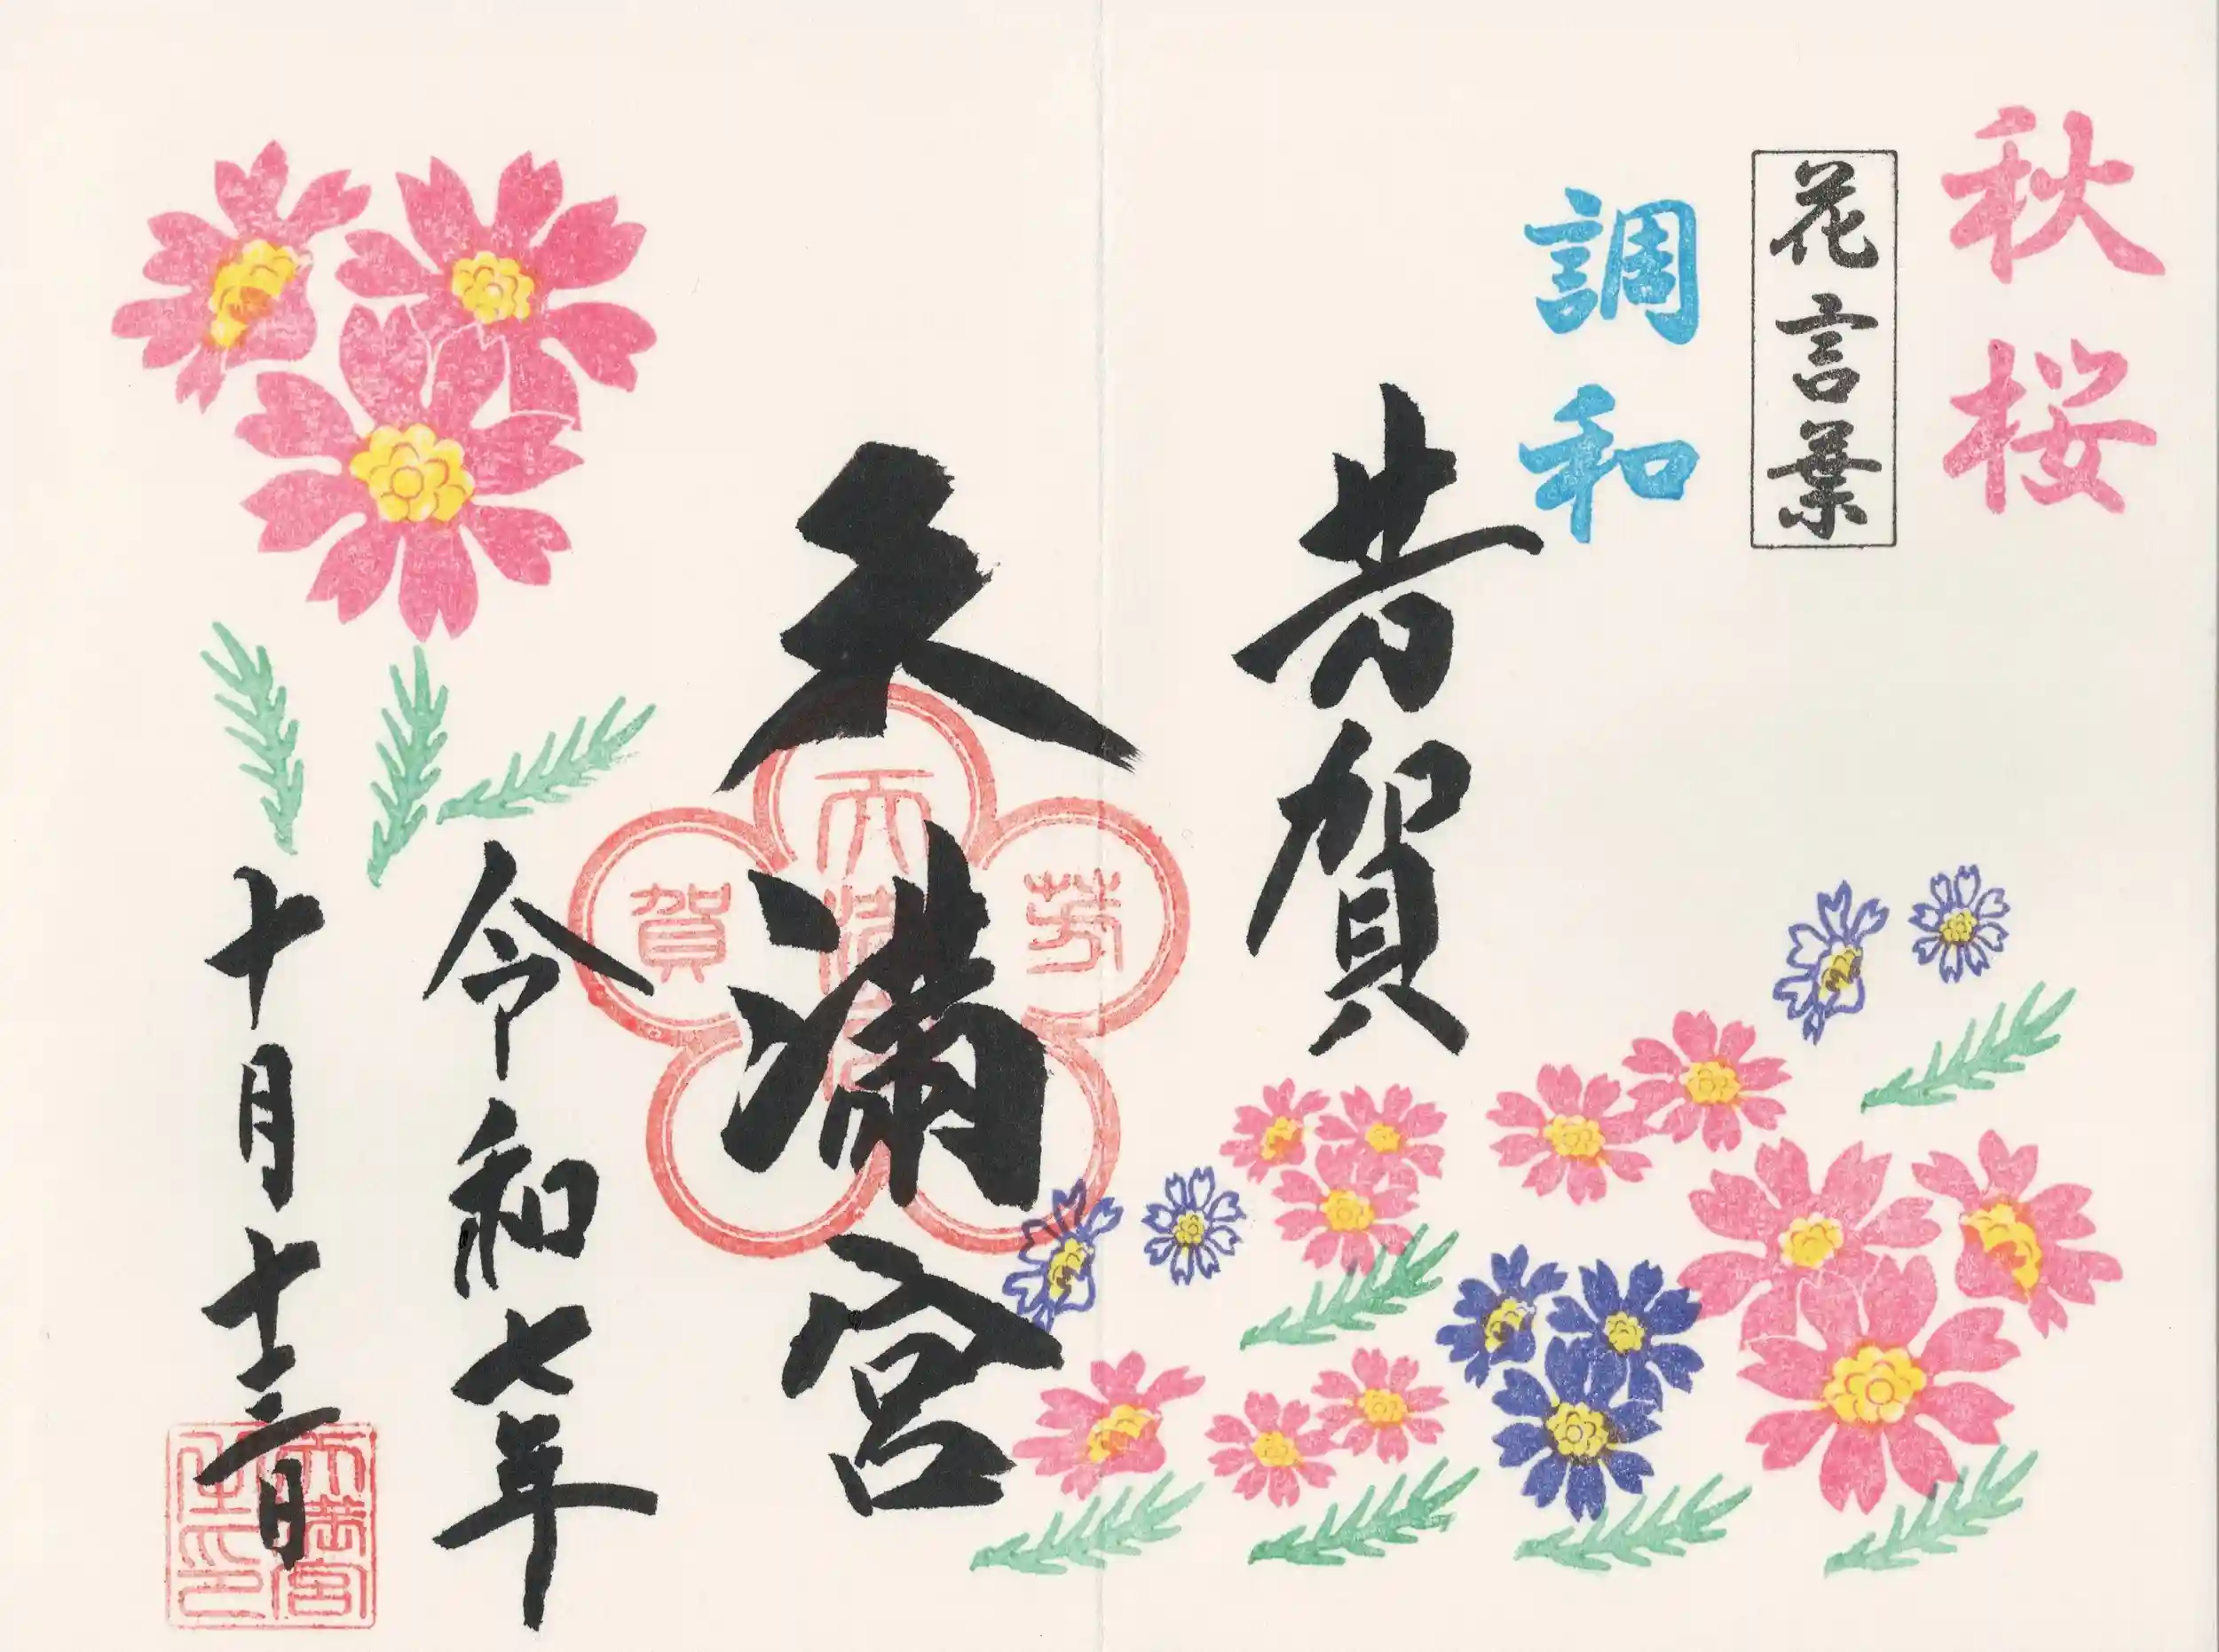 秋桜
花言葉
調和
芳賀
天満宮
芳
天満宮
賀
令和七年
十月十三日
天満宮
之印